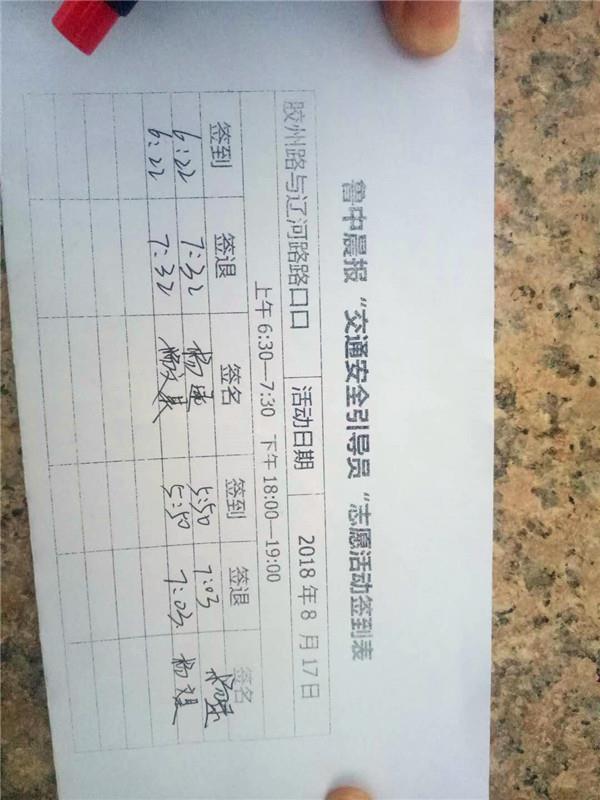 鲁中晨报 “交通安全引导员 “志愿活动签到表
胶州路与辽河路路口口 活动日期 2018 年 8 月 17 日
上午 6:30—7:30 下午 18:00 - 19:00
签到 签退 签名 签到 签退 签名
6:22 7:32 杨 5:50 7:03 杨
6:22 7:32 杨文 5:50 7:03 杨文